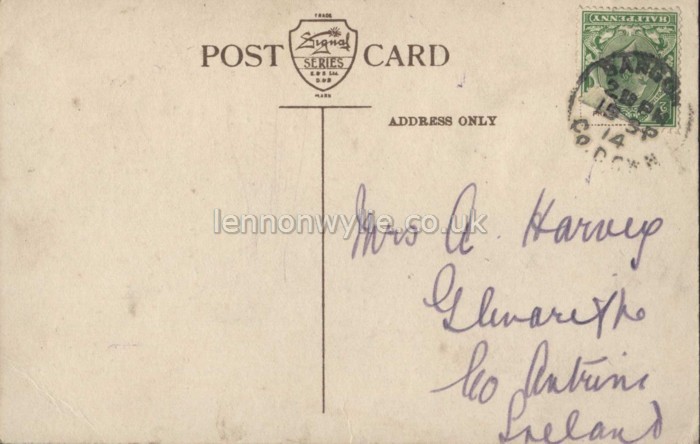 TRADE
Signal
SERIES
E & S Ltd.
DUB
MARK
POST CARD
ADDRESS ONLY
HALFPENNY
BANGOR
15 SP
14
CO. DOWN
lennonwylie.co.uk
Mrs A. Harvey
Glenariffe
Co Antrim
Ireland